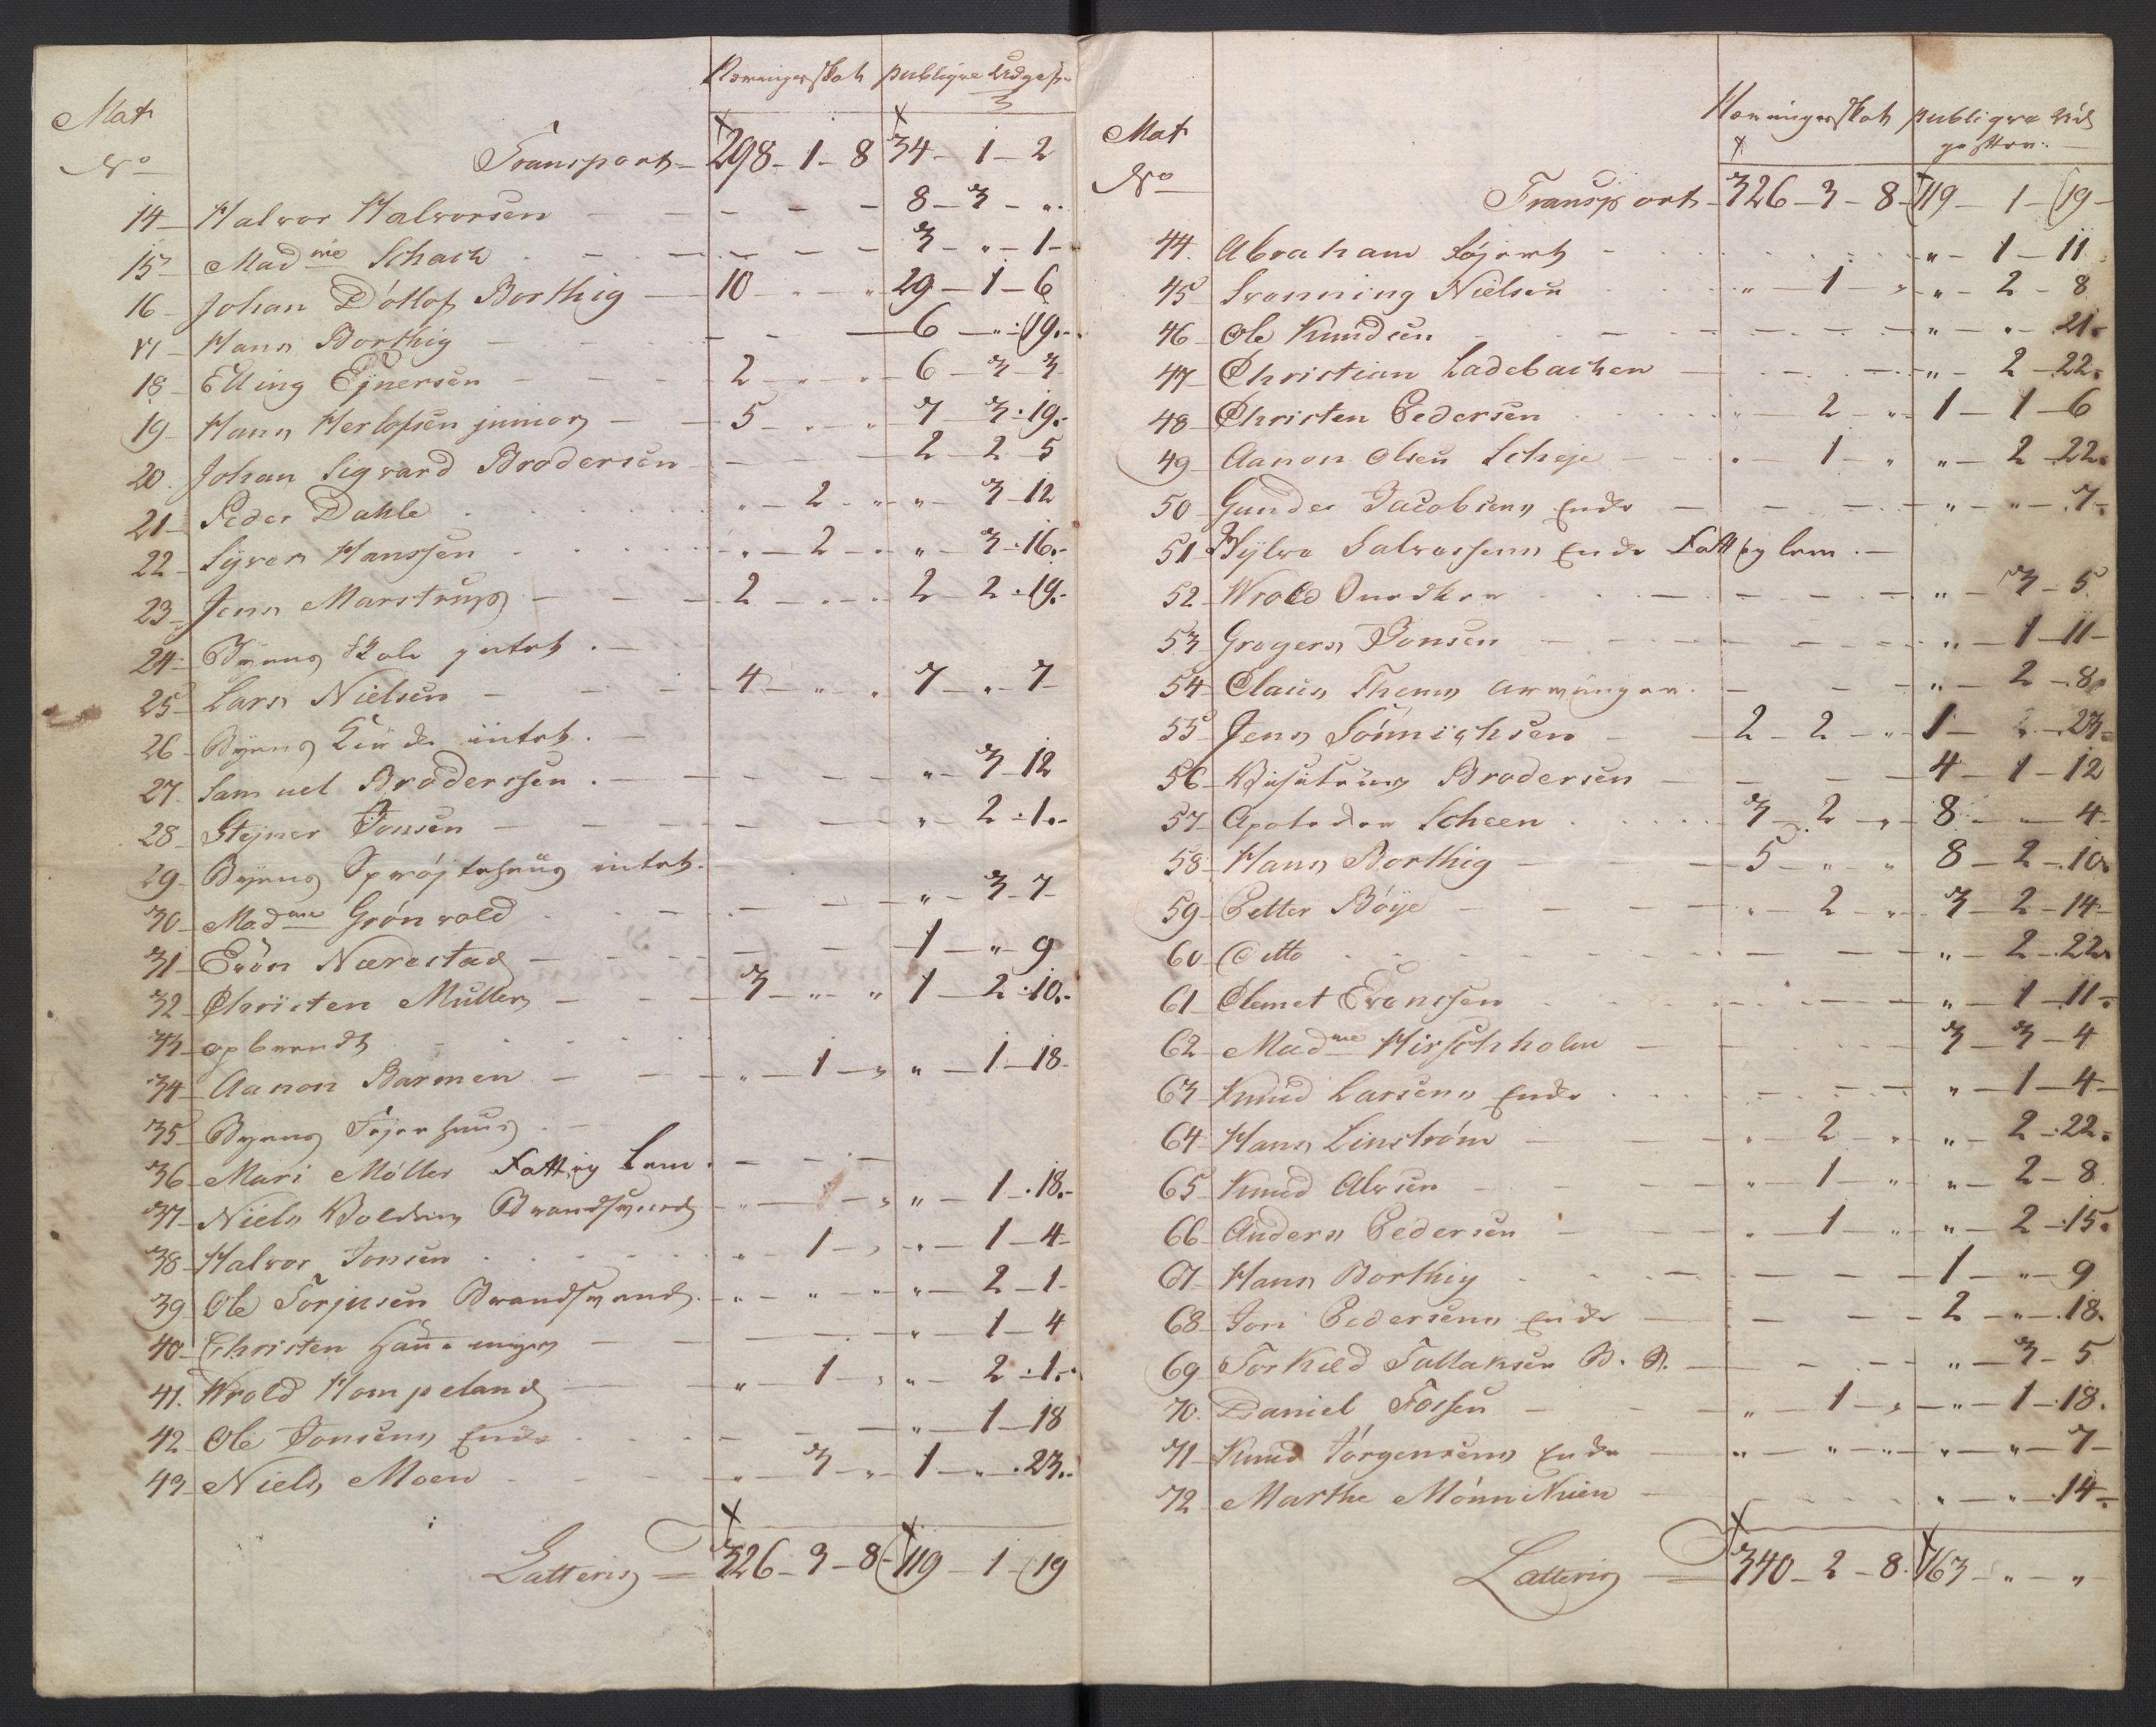 Mat No Næringsskat publiqve Udgift
Transport 298-1-8 34-1-2
14 Halvor Halvorsen - - - 8-3-"
15 Madme Schach - - - 3-"-1
16 Johan Dótlof Borthig 10-"-" 29-1-6
17 Hans Borthig - - - 6-"-19
18 Elling Ejnersen 2-"-" 6-3-3
19 Hans Herlofsen junior 5-"-" 7-3-19
20 Johan Sigvard Brodersen - - - 2-2-5
21 Peder Dahle "-2-" "-3-12
22 Syver Hanssen "-2-" "-3-16
23 Jens Marstrup 2-"-" 2-2-19
24 Byens Skole intet
25 Lars Nielsen 4-"-" 7-"-7
26 Byens intet
27 Samuel Broderssen - - - "-3-12
28 Stejner Jonsen - - - "-2-1
29 Byens Sprøjtehuus intet
30 Madme Grónvold - - - "-3-7
31 Evón Nærestad - - - 1-"-9
32 Christen Muller 3-"-" 1-2-10
33 opbrendt
34 Aanon Barmen "-1-" "-1-18
35 Byens
36 Mari Móller Fattig Lem
37 Niels Bolden Brandsvend "-"-" "-1-18
38 Halvor Jonsen "-1-" "-1-4
39 Ole Torjusen Brandsvend "-"-" "-2-1
40 Christen - - - "-1-4
41 Wrold Hompeland "-1-" "-2-1
42 Ole Jonsens Enke - - - "-1-18
43 Niels Moen "-3-" 1-"-23
Latteris 326-3-8 119-1-19
Mat No Næringsskat publiqve Udgifter
Transport 326-3-8 119-1-19
44 Abraham - - - "-1-11
45 Svenning Nielsen "-1-" "-2-8
46 Ole Knudsen - - - "-"-21
47 Christian Ladebachen - - - "-2-22
48 Christen Pedersen "-2-" 1-1-6
49 Aanon Olsen Scheje "-1-" "-2-22
50 Gunder Jacobsens Enke - - - "-"-7
51 Salvessens Enke Fattig Lem
52 Wrold - - - "-3-5
53 Gregers Jonsen - - - "-1-11
54 Claus Thems Arvinger - - - "-2-8
55 Jens Sónnichsen 2-2-" 1-2-23
56 Brodersen - - - 4-1-12
57 Apoteker Scheen 3-2-" 8-"-4
58 Hans Borthig 5-"-" 8-2-10
59 Petter Bóye "-2-" 3-2-14
60 Ditto - - - "-2-22
61 Clemet Evenssen - - - "-1-11
62 Madme Hirschholm - - - 3-3-4
63 Knud Larsens Enke - - - "-1-4
64 Hans Linstróm "-2-" "-2-22
65 Knud Alvsen "-1-" "-2-8
66 Anders Pedersen "-1-" "-2-15
67 Hans Borthig - - - 1-"-9
68 Jon Pedersens Enke - - - 2-"-18
69 Torkild Tallaksen B. S. - - - "-3-5
70 Daniel Fossen "-1-" "-1-18
71 Knud Jórgensens Enke "-"-" "-"-7
72 Marthe Mónniknien - - - "-"-14
Latteris 340-2-8 163-"-"